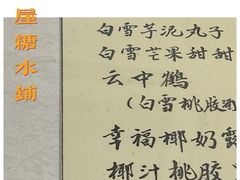 屋糖水鋪
白雪芋泥丸子
白雪芒果甜甜
云中鶴
(白雪桃胶
幸福椰奶露
椰汁桃胶